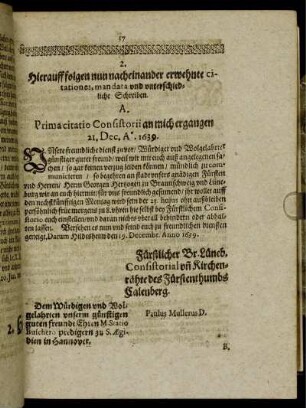 17
2.
Hierauff folgen nun nacheinander erwehnte ci-
tationes, mandata und unterschied-
liche Schreiben.
A.
Prima citatio Consistorii an mich ergangen
21. Dec. A°. 1639.
Unsere freundliche dienst zuvor/ Würdiger und Wolgelahrter
günstiger guter freund/ weil wir mit euch auß angelegenen sa-
chen/ so gar keinen verzug leiden können/ mündlich zu com-
municieren/ so begehren an stadt unsers gnädigen Fürsten
und Herren/ Herrn Georgen Hertzogen zu Braunschweig und Lüne-
burg wir an euch hiermit für uns freundlich gesinnend/ ihr wollet auff
den nechstkünfftigen Montag wird sein der 23. huius ohn außbleiben
persöhnlich früe morgens zu 8. uhren hie selbst bey Fürstlichem Consi-
storio euch einstellen/ und daran nichts überall behindern oder abhal-
ten lassen. Versehen es uns und seind euch zu freundlichen diensten
geneigt, Datum Hildesheim den 19. Decembr. Anno 1639.
Fürstlicher Br. Lüneb.
Consistorial uñ Kirchen-
rähte des Fürstenthumbs
Calenberg.
Dem Würdigen und Wol-
gelahrten unserm günstigen
guten freunde Ehren M. Statio
Büschero predigern zu S. Ægi-
dien in Hannover.
Paulus Mullerus D.
B.